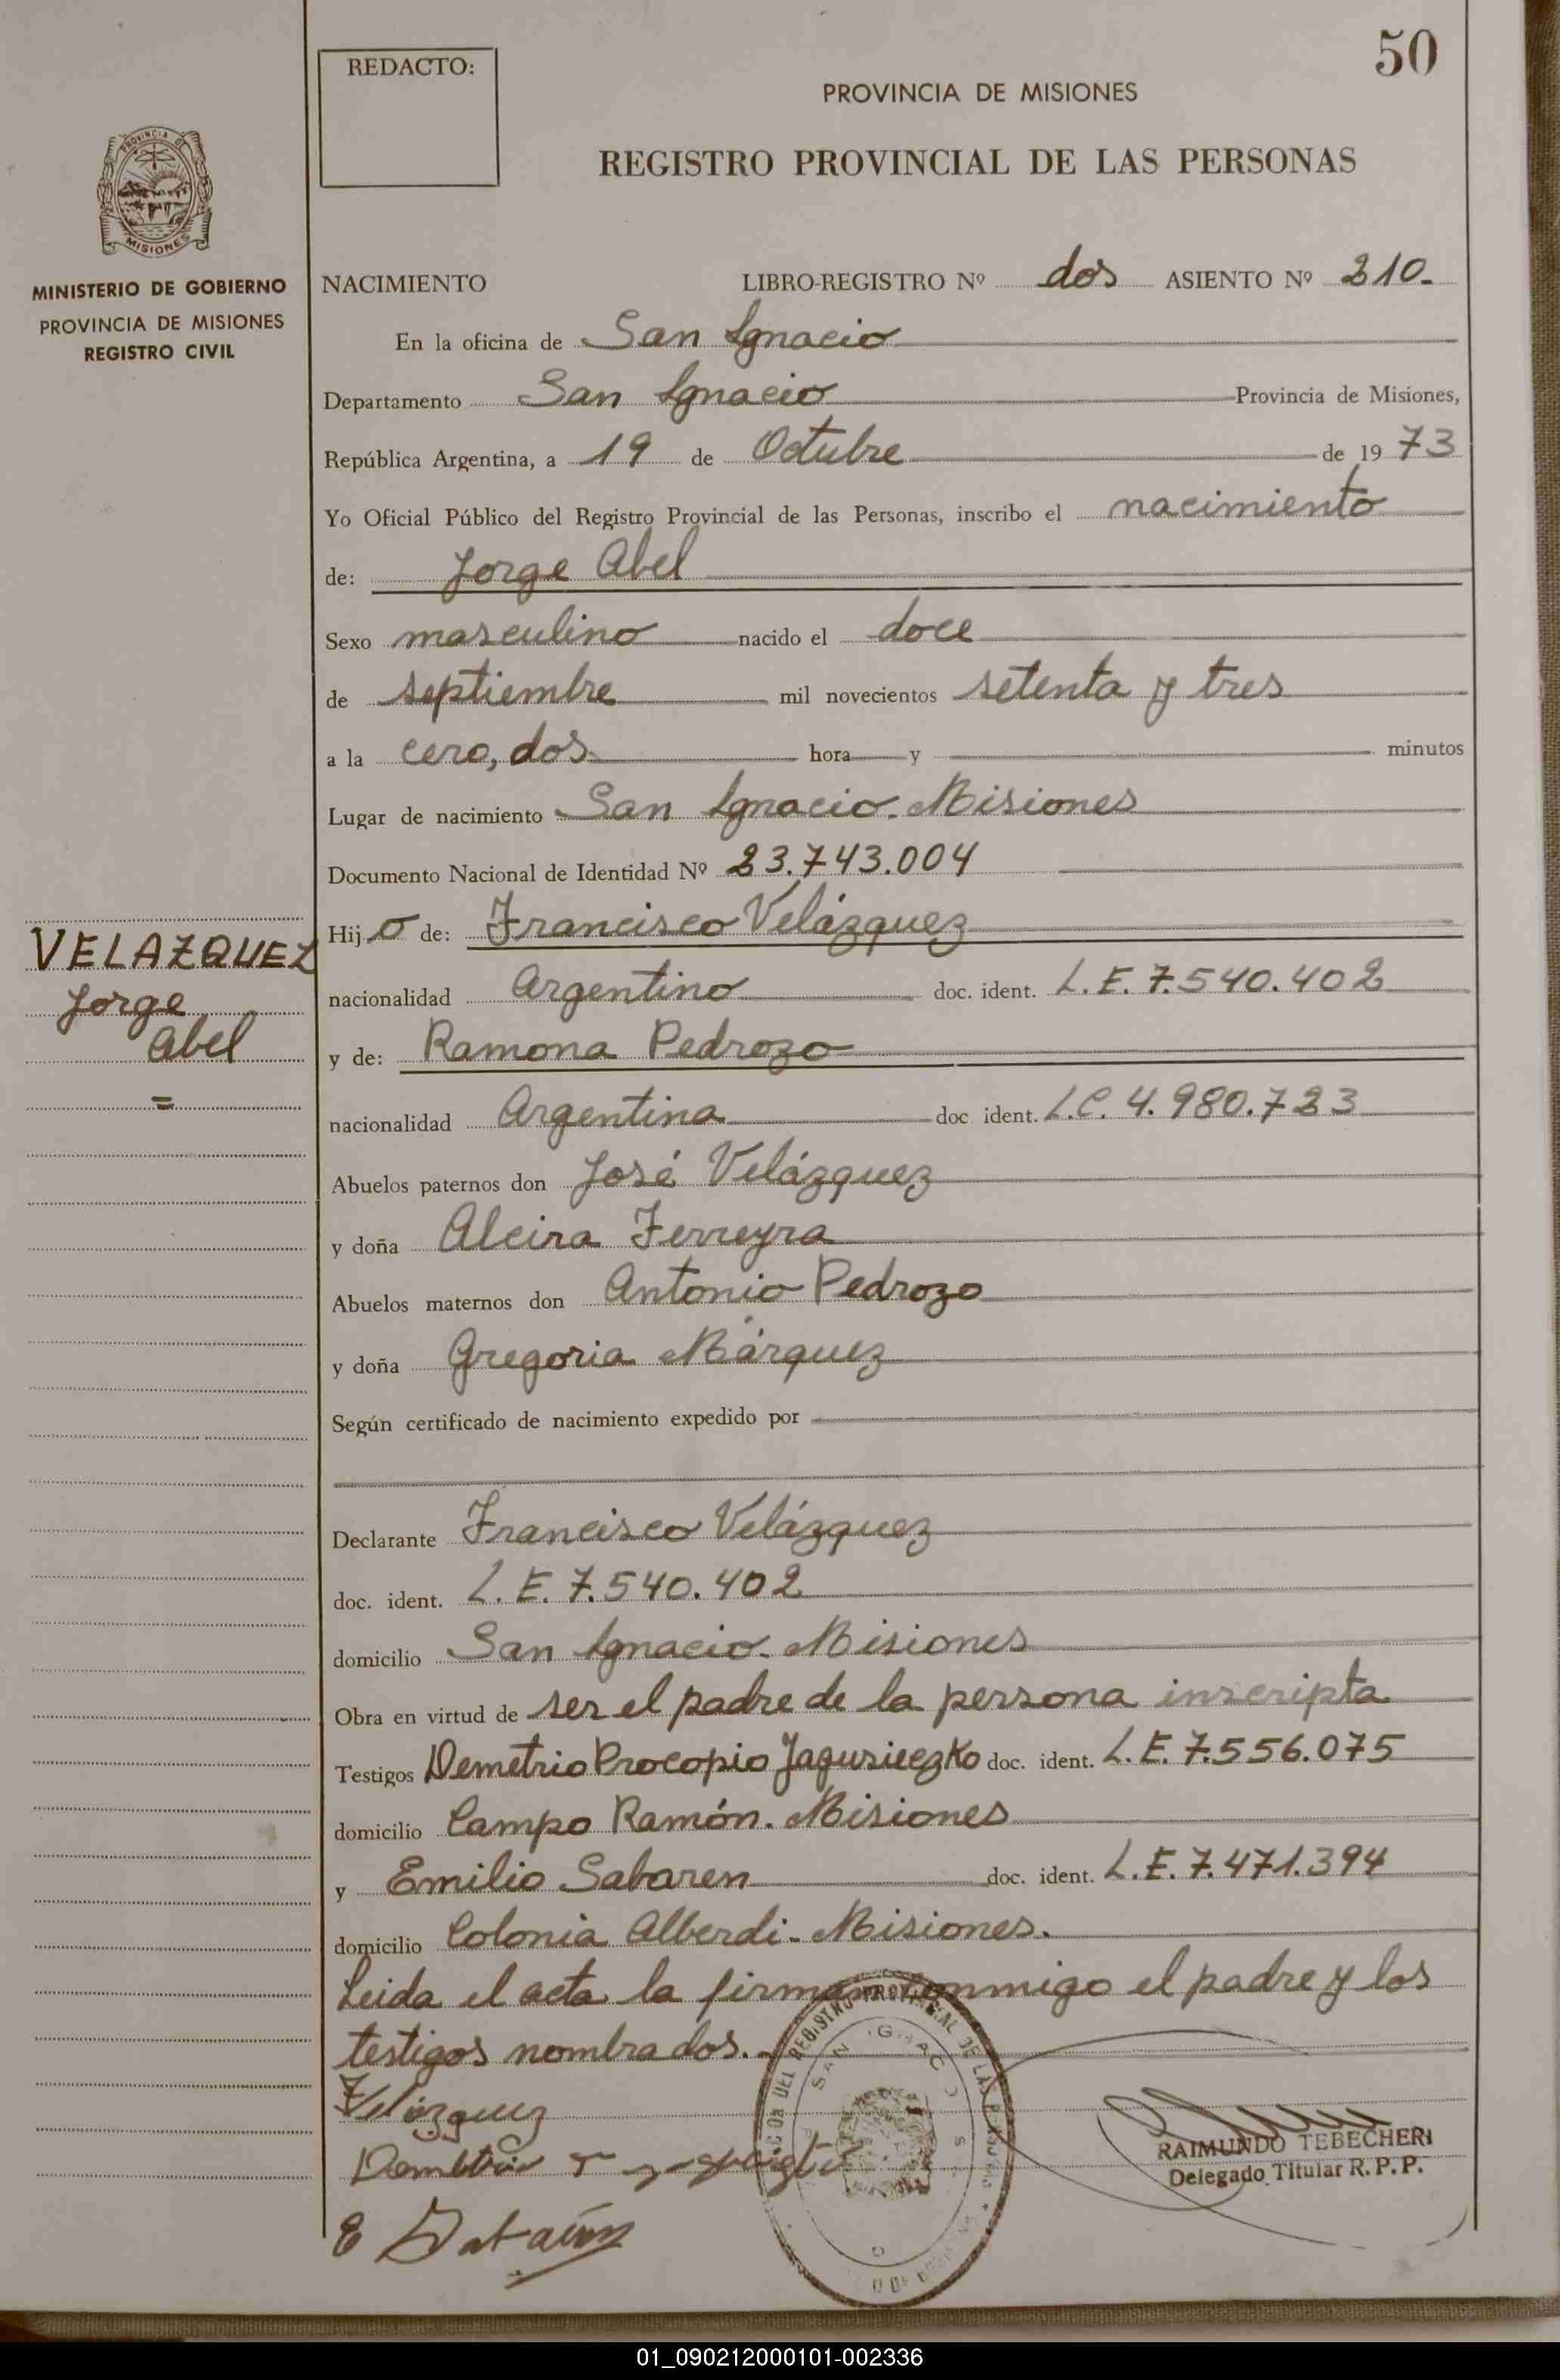 50
REDACTO:
PROVINCIA DE MISIONES
REGISTRO PROVINCIAL DE LAS PERSONAS
PROVINCIA DE
MISIONES
MINISTERIO DE GOBIERNO
PROVINCIA DE MISIONES
REGISTRO CIVIL
NACIMIENTO LIBRO-REGISTRO Nº dos ASIENTO Nº 210.
En la oficina de San Ignacio
Departamento San Ignacio Provincia de Misiones,
República Argentina, a 19 de Octubre de 1973
Yo Oficial Público del Registro Provincial de las Personas, inscribo el nacimiento
de: Jorge Abel
Sexo masculino nacido el doce
de septiembre mil novecientos setenta y tres
a la cero, dos hora y minutos
Lugar de nacimiento San Ignacio. Misiones
Documento Nacional de Identidad Nº 23.743.004
VELAZQUEZ
Jorge
Abel
=
Hijo de: Francisco Velázquez
nacionalidad Argentino doc. ident. L.E. 7.540.402
y de: Ramona Pedrozo
nacionalidad Argentina doc ident. L.C. 4.980.723
Abuelos paternos don José Velázquez
y doña Alcira Ferreyra
Abuelos maternos don Antonio Pedrozo
y doña Gregoria Márquez
Según certificado de nacimiento expedido por
Declarante Francisco Velázquez
doc. ident. L.E. 7.540.402
domicilio San Ignacio. Misiones
Obra en virtud de ser el padre de la persona inscripta
Testigos Demetrio Procopio doc. ident. L.E. 7.556.075
domicilio Campo Ramón. Misiones
y Emilio Sabaren doc. ident. L.E. 7.471.394
domicilio Colonia Alberdi. Misiones.
Leida el acta la firman conmigo el padre y los
testigos nombrados.
Velázquez
RAIMUNDO TEBECHERI
Delegado Titular R.P.P.
01_090212000101-002336